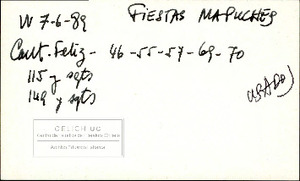 W 7-6-89 FIESTAS MAPUCHES
Caut. Feliz - 46-55-57-69-70
115 y sgts
149 y sgts
(USADO)
CELICH UC